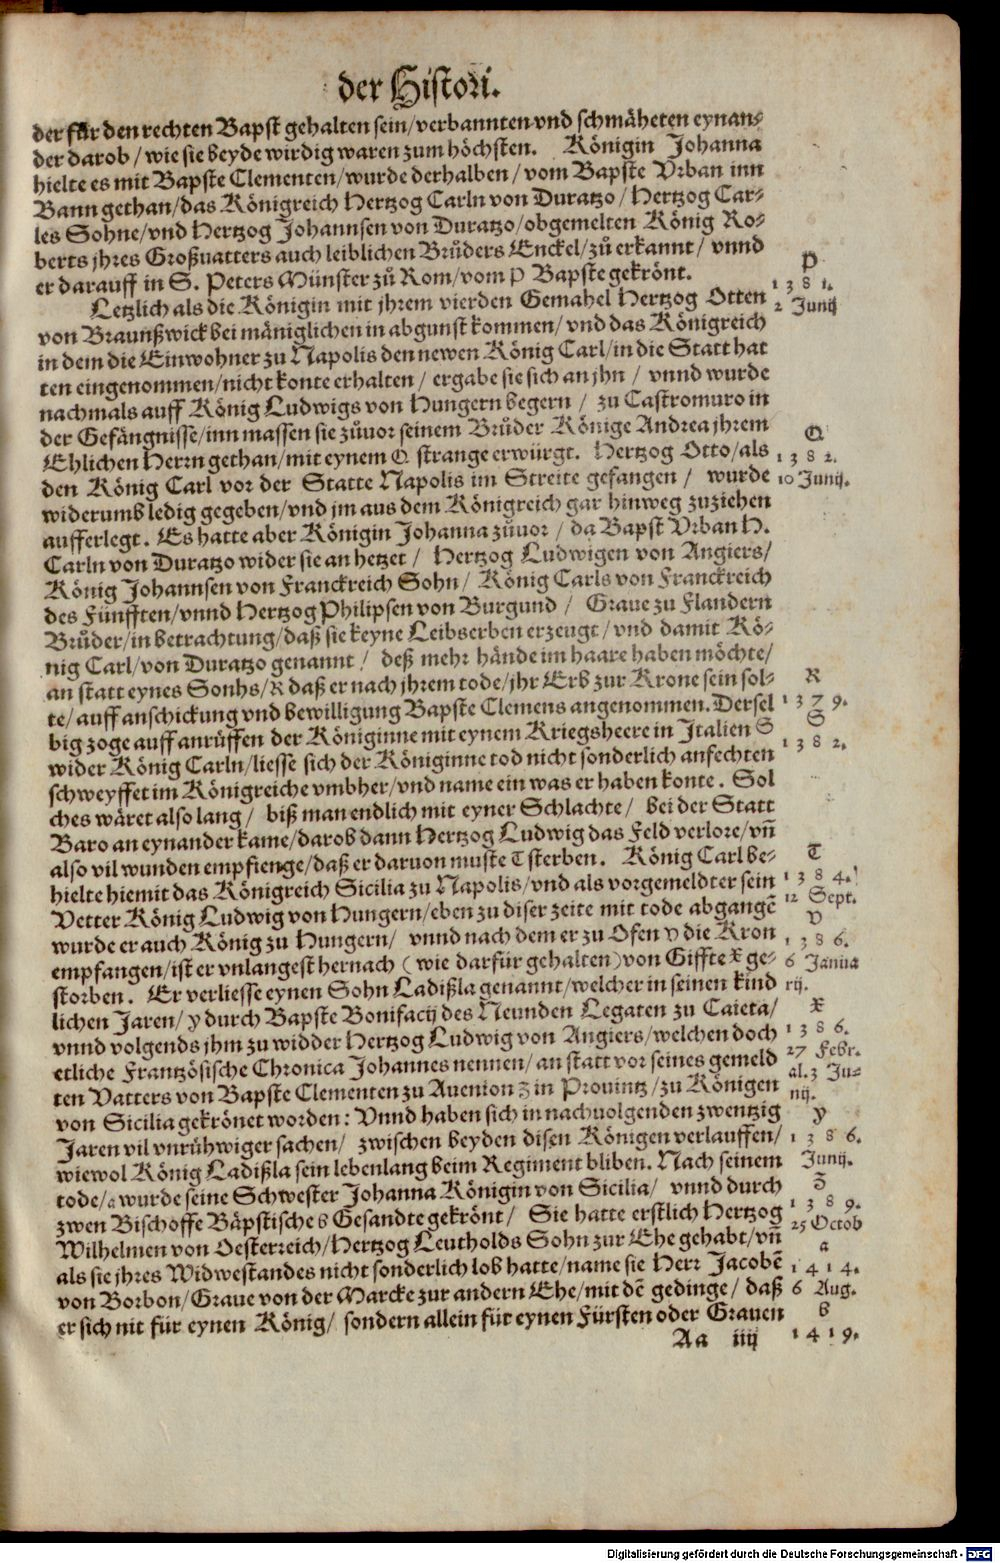 der Histori.
der für den rechten Bapst gehalten sein/verbannten vnd schmäheten eynan-
der darob/wie sie beyde wirdig waren zum höchsten. Königin Johanna
hielte es mit Bapste Clementen/wurde derhalben/vom Bapste Vrban inn
Bann gethan/das Königreich Hertzog Carln von Duratzo/Hertzog Car-
les Sohne/vnd Hertzog Johannsen von Duratzo/obgemelten König Ro-
berts jhres Großuatters auch leiblichen Brůders Enckel/zů erkannt/vnnd
er darauff in S. Peters Münster zů Rom/vom P Bapste gekrönt.
P
1381.
Letzlich als die Königin mit jhrem vierden Gemahel Hertzog Otten
2 Junij
von Braunßwick bei mäniglichen in abgunst kommen/vnd das Königreich
in dem die Einwohner zu Napolis den newen König Carl/in die Statt hat
ten eingenommen/nicht konte erhalten/ergabe sie sich an jhn/vnnd wurde
nachmals auff König Ludwigs von Hungern begern/zu Castromuro in
der Gefängnisse/inn massen sie zůuor seinem Brůder Könige Andrea jhrem
Q
Ehlichen Herrn gethan/mit eynem Q strange erwürgt. Hertzog Otto/als
1382.
den König Carl vor der Statte Napolis im Streite gefangen/wurde
10 Junij.
widerumb ledig gegeben/vnd jm aus dem Königreich gar hinweg zuziehen
aufferlegt. Es hatte aber Königin Johanna zůuor/da Bapst Vrban H.
Carln von Duratzo wider sie an hetzet/Hertzog Ludwigen von Angiers/
König Johannsen von Franckreich Sohn/König Carls von Franckreich
des Fünfften/vnnd Hertzog Philipsen von Burgund/Graue zu Flandern
Brůder/in betrachtung/daß sie keyne Leibserben erzeugt/vnd damit Kö-
nig Carl/von Duratzo genannt/deß mehr hände im haare haben möchte/
an statt eynes Sonhs/R daß er nach jhrem tode/jhr Erb zur Krone sein sol-
R
te/auff anschickung vnd bewilligung Bapste Clemens angenommen. Dersel
1379.
big zoge auff anrüffen der Königinne mit eynem Kriegsheere in Italien S
S
wider König Carln/liesse sich der Königinne tod nicht sonderlich anfechten
1382.
schweyffet im Königreiche vmbher/vnd name ein was er haben konte. Sol
ches wäret also lang/biß man endlich mit eyner Schlachte/bei der Statt
Baro an eynander kame/darob dann Hertzog Ludwig das Feld verlore/vn̄
also vil wunden empfienge/daß er daruon muste T sterben. König Carl be-
T
hielte hiemit das Königreich Sicilia zu Napolis/vnd als vorgemeldter sein
1384.
Vetter König Ludwig von Hungern/eben zu diser zeite mit tode abgangē
12 Sept.
V
wurde er auch König zu Hungern/vnnd nach dem er zu Ofen v die Kron
1386.
empfangen/ist er vnlangest hernach (wie darfür gehalten) von Giffte X ge-
6 Janua
storben. Er verliesse eynen Sohn Ladißla genannt/welcher in seinen kind
rij.
X
lichen Jaren/y durch Bapste Bonifacij des Neunden Legaten zu Caieta/
1386.
vnnd volgends jhm zu widder Hertzog Ludwig von Angiers/welchen doch
27 Febr.
etliche Frantzösische Chronica Johannes nennen/an statt vor seines gemeld
al. 3 Ju-
ten Vatters von Bapste Clementen zu Auenion z in Prouintz/zu Königen
nij.
y
von Sicilia gekrönet worden: Vnnd haben sich in nachuolgenden zwentzig
Jaren vil vnrühwiger sachen/zwischen beyden disen Königen verlauffen/
1386.
wiewol König Ladißla sein lebenlang beim Regiment bliben. Nach seinem
Junij.
z
tode/a wurde seine Schwester Johanna Königin von Sicilia/vnnd durch
1389.
zwen Bischoffe Bäpstische b Gesandte gekrönt/Sie hatte erstlich Hertzog
25 Octob
Wilhelmen von Oesterreich/Hertzog Leutholds Sohn zur Ehe gehabt/vn̄
a
als sie jhres Widwestandes nicht sonderlich lob hatte/name sie Herr Jacobē
1414.
von Borbon/Graue von der Marcke zur andern Ehe/mit dē gedinge/daß
6 Aug.
b
er sich nit für eynen König/sondern allein für eynen Fürsten oder Grauen
1419.
Aa iiij
Digitalisierung gefördert durch die Deutsche Forschungsgemeinschaft - DFG